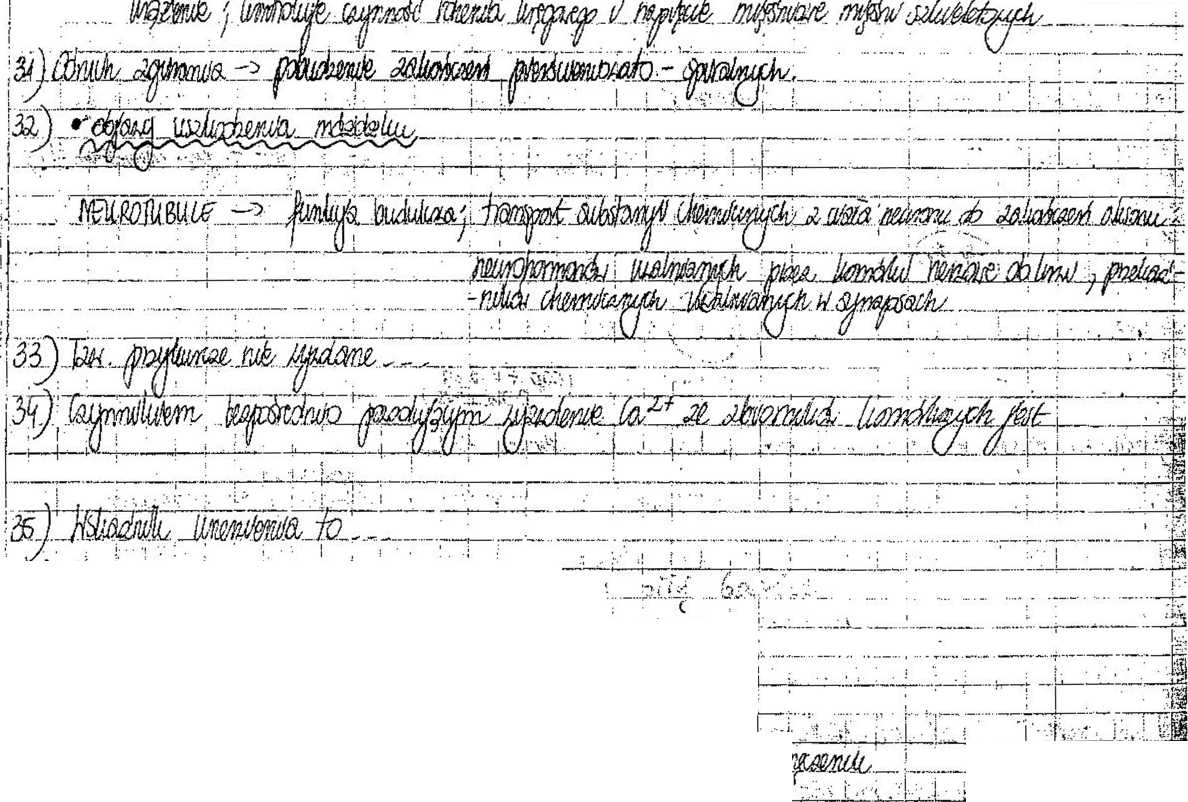 wrażenie ; kontroluje czynność rdzenia kręgowego i napięcie mięśniowe mięśni szkieletowych
31) Odruch zginania -> pobudzenie zakończeń pierścieniowato - spiralnych.
32) • objawy uszkodzenia móżdżku
NEUROTUBULE -> funkcja budulcza; transport substancji chemicznych z ciała neuronu do zakończeń aksonu:
neurohormonów uwalnianych przez komórki nerwowe do krwi, przekaź-
-ników chemicznych uwalnianych w synapsach
33) Tzw. przykurcze nie wyzdane ....
34) Czynnikiem bezpośrednio powodującym uwolnienie Ca2+ ze zbiorników komórkowych jest
35) Wskaźnik unerwienia to ...